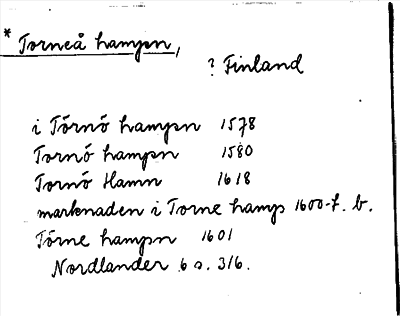 * Torneå hampn,
? Finland
i Törnö hampn 1578
Tornö hampn 1580
Tornö Hamn 1618
marknaden i Torne hamps 1600-t. b.
Törne hampn 1601
Nordlander 6 s. 316.